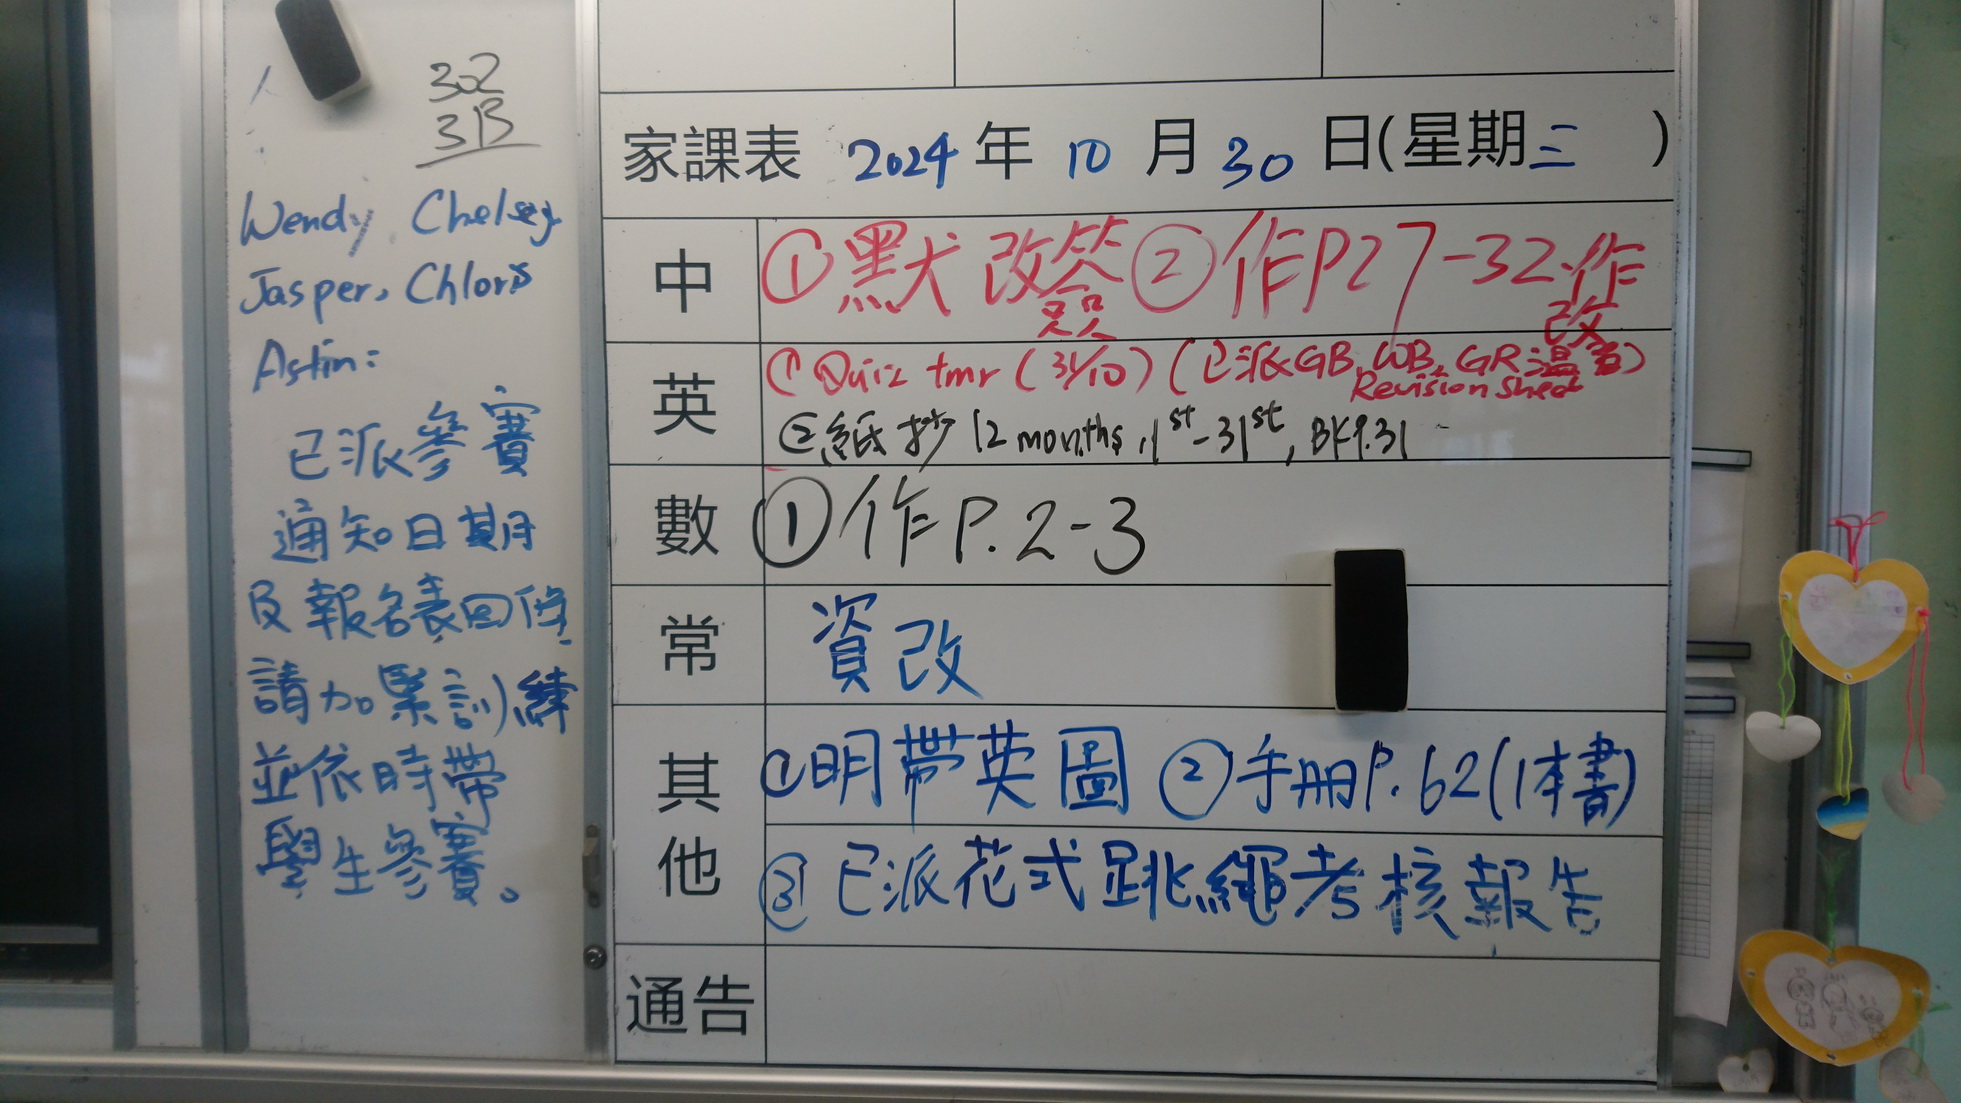 302
3B
Wendy, Chelsey
Jasper, Chloris
Astin:
已派參賽
通知日期
及報名表回條,
請加緊訓練
並依時帶
學生參賽。
家課表 2024年 10月 30日(星期三 )
中 ①默改簽 ②作P27-32作
改
英 ①Quiz tmr (31/10) (已派GB, WB, GR溫習)
Revision Sheet
②紙抄 12 months, 1st-31st, BK P.31
數 ①作P.2-3
常 資改
其他 ①明帶英圖 ②手冊P.62(1本書)
③已派花式跳繩考核報告
通告